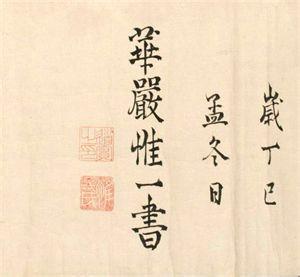 歲丁巳
孟冬日
華嚴惟一書